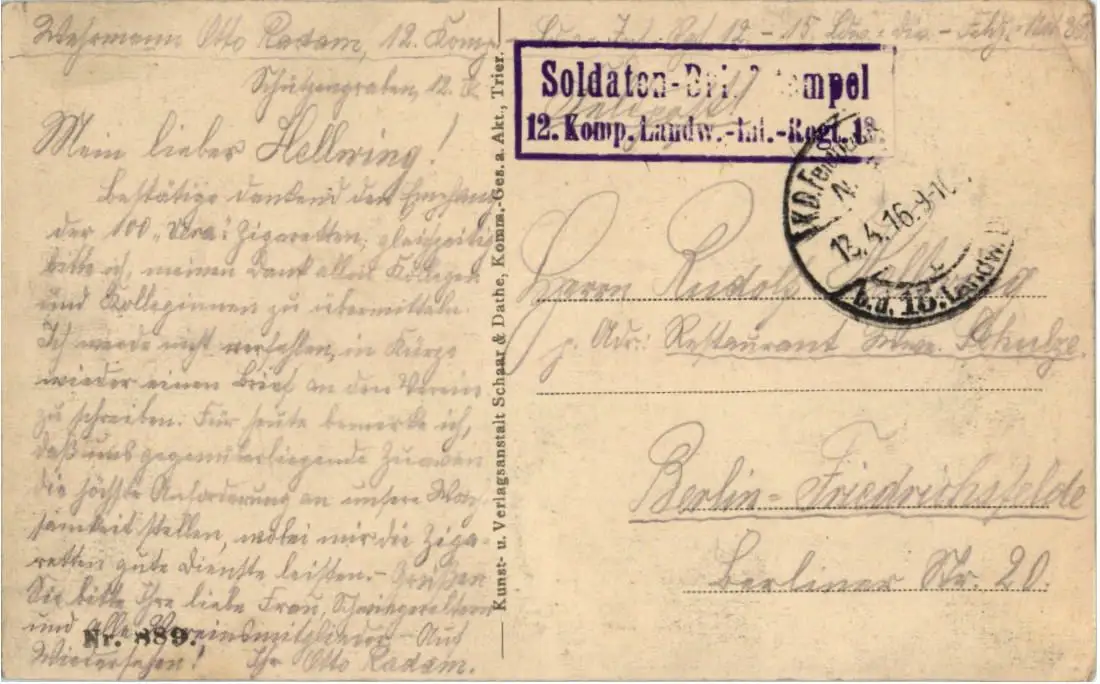 Wehrmann Otto Radam, 12. Komp. Ldw. Inf. Rgt. 12 - 15. Ldw. div. - Feldp.
Schützengraben, 12. IV.
Mein lieber Hellwing!
Bestätige dankend den Empfang
der 100 „ Zigaretten, gleichzeitig
bitte ich, meinen Dank allen Kollegen
und Kolleginnen zu übermitteln.
Ich werde nicht verfehlen, in Kürze
wieder einen Brief an den Verein
zu schreiben. Für heute bemerke ich,
daß uns gegenüberliegende Zuaven
die höchste Anforderung an unsere Wach-
samkeit stellen, wobei mir die Ziga-
retten gute Dienste leisten. - Grüßen
Sie bitte Ihre liebe Frau, Schwiegereltern
und alle Vereinsmitglieder - Auf
Wiedersehen! Ihr Otto Radam.
Nr. 889.
Kunst- u. Verlagsanstalt Schaar & Dathe, Komm.-Ges. a. Akt., Trier.
Soldaten-Brief Stempel
12. Komp. Landw.-Inf.-Regt. 12
Feldpost
K.D. Feldpost
13.4.16. 9-10
b.d. 15. Landw. D
Herrn Rudolf Hellwing
p. Adr: Restaurant Wwe. Schulze.
Berlin-Friedrichsfelde
Berliner Str. 20.